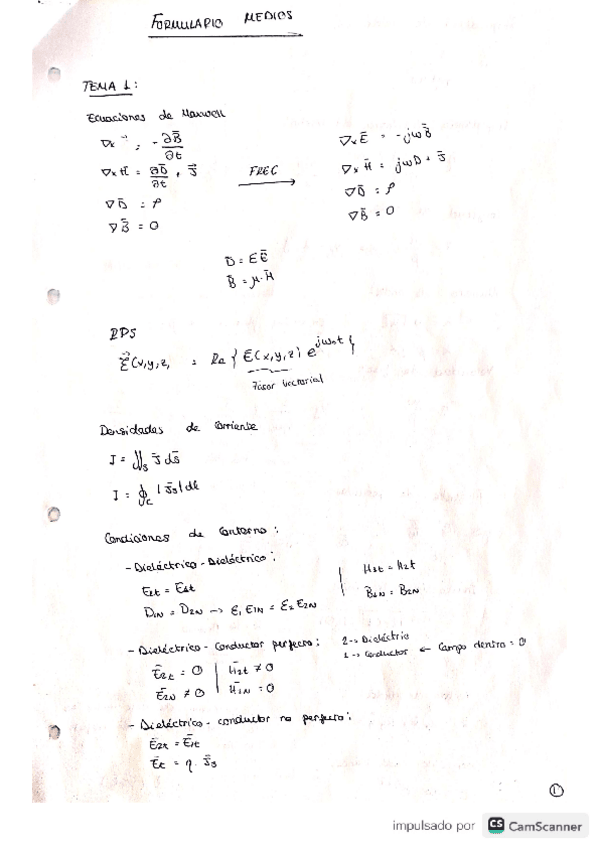 FORMULARIO MEDIOS
TEMA 1:
Ecuaciones de Maxwell
∇x = -∂B̄/∂t
∇xH̄ = ∂D̄/∂t + J̄
∇D̄ = ρ
∇B̄ = 0
FREC
∇xĒ = -jωB̄
∇xH̄ = jωD + J̄
∇D̄ = ρ
∇B̄ = 0
D̄ = εĒ
B̄ = μ·H̄
RPS
Ē(x,y,z, = Re { E(x,y,z) e^jω₀t }
Fasor vectorial
Densidades de corriente
I = ∬s J̄ ds̄
I = ∮c |J̄s| dl
Condiciones de contorno:
- Dieléctrico - Dieléctrico:
E2t = E1t
D1N = D2N -> ε1 E1N = ε2 E2N
H1t = H2t
B1N = B2N
- Dieléctrico - Conductor perfecto:
2-> Dieléctrico
1-> Conductor <- Campo dentro = 0
Ē2t = 0 | H̄2t ≠ 0
Ē2N ≠ 0 | H̄1N = 0
- Dieléctrico - conductor no perfecto:
Ē2t = Ē1t
Ēt = η · J̄s
1
impulsado por CS CamScanner